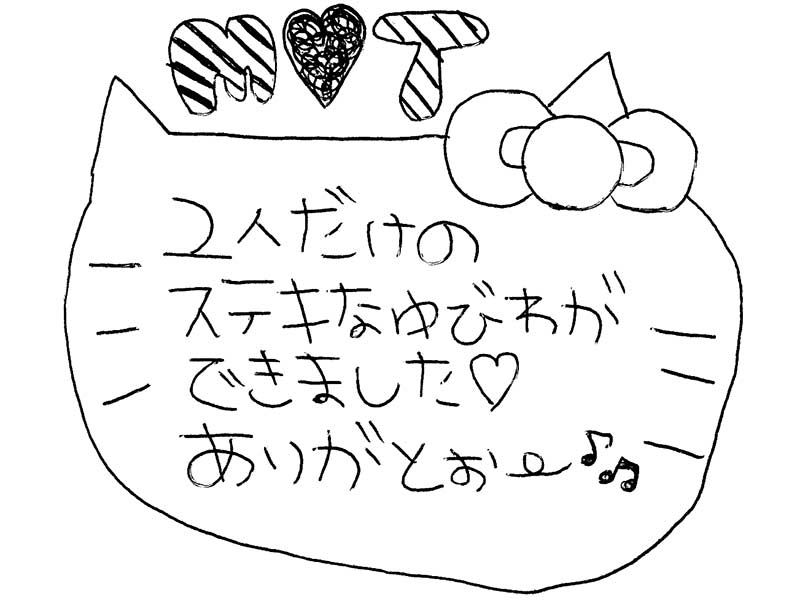 M♥T
2人だけの
ステキなゆびわが
できました♡
ありがとぉー♪♫